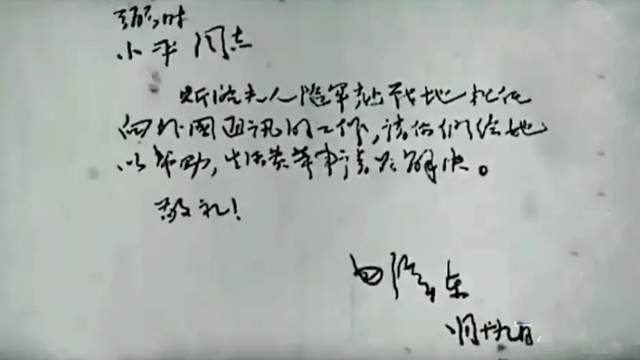 弼时
小平同志
斯诺夫人随军赴战地担任
向外国通讯的工作，请你们给她
以帮助，生活费等事请为解决。
敬礼！
毛泽东
八月十九日